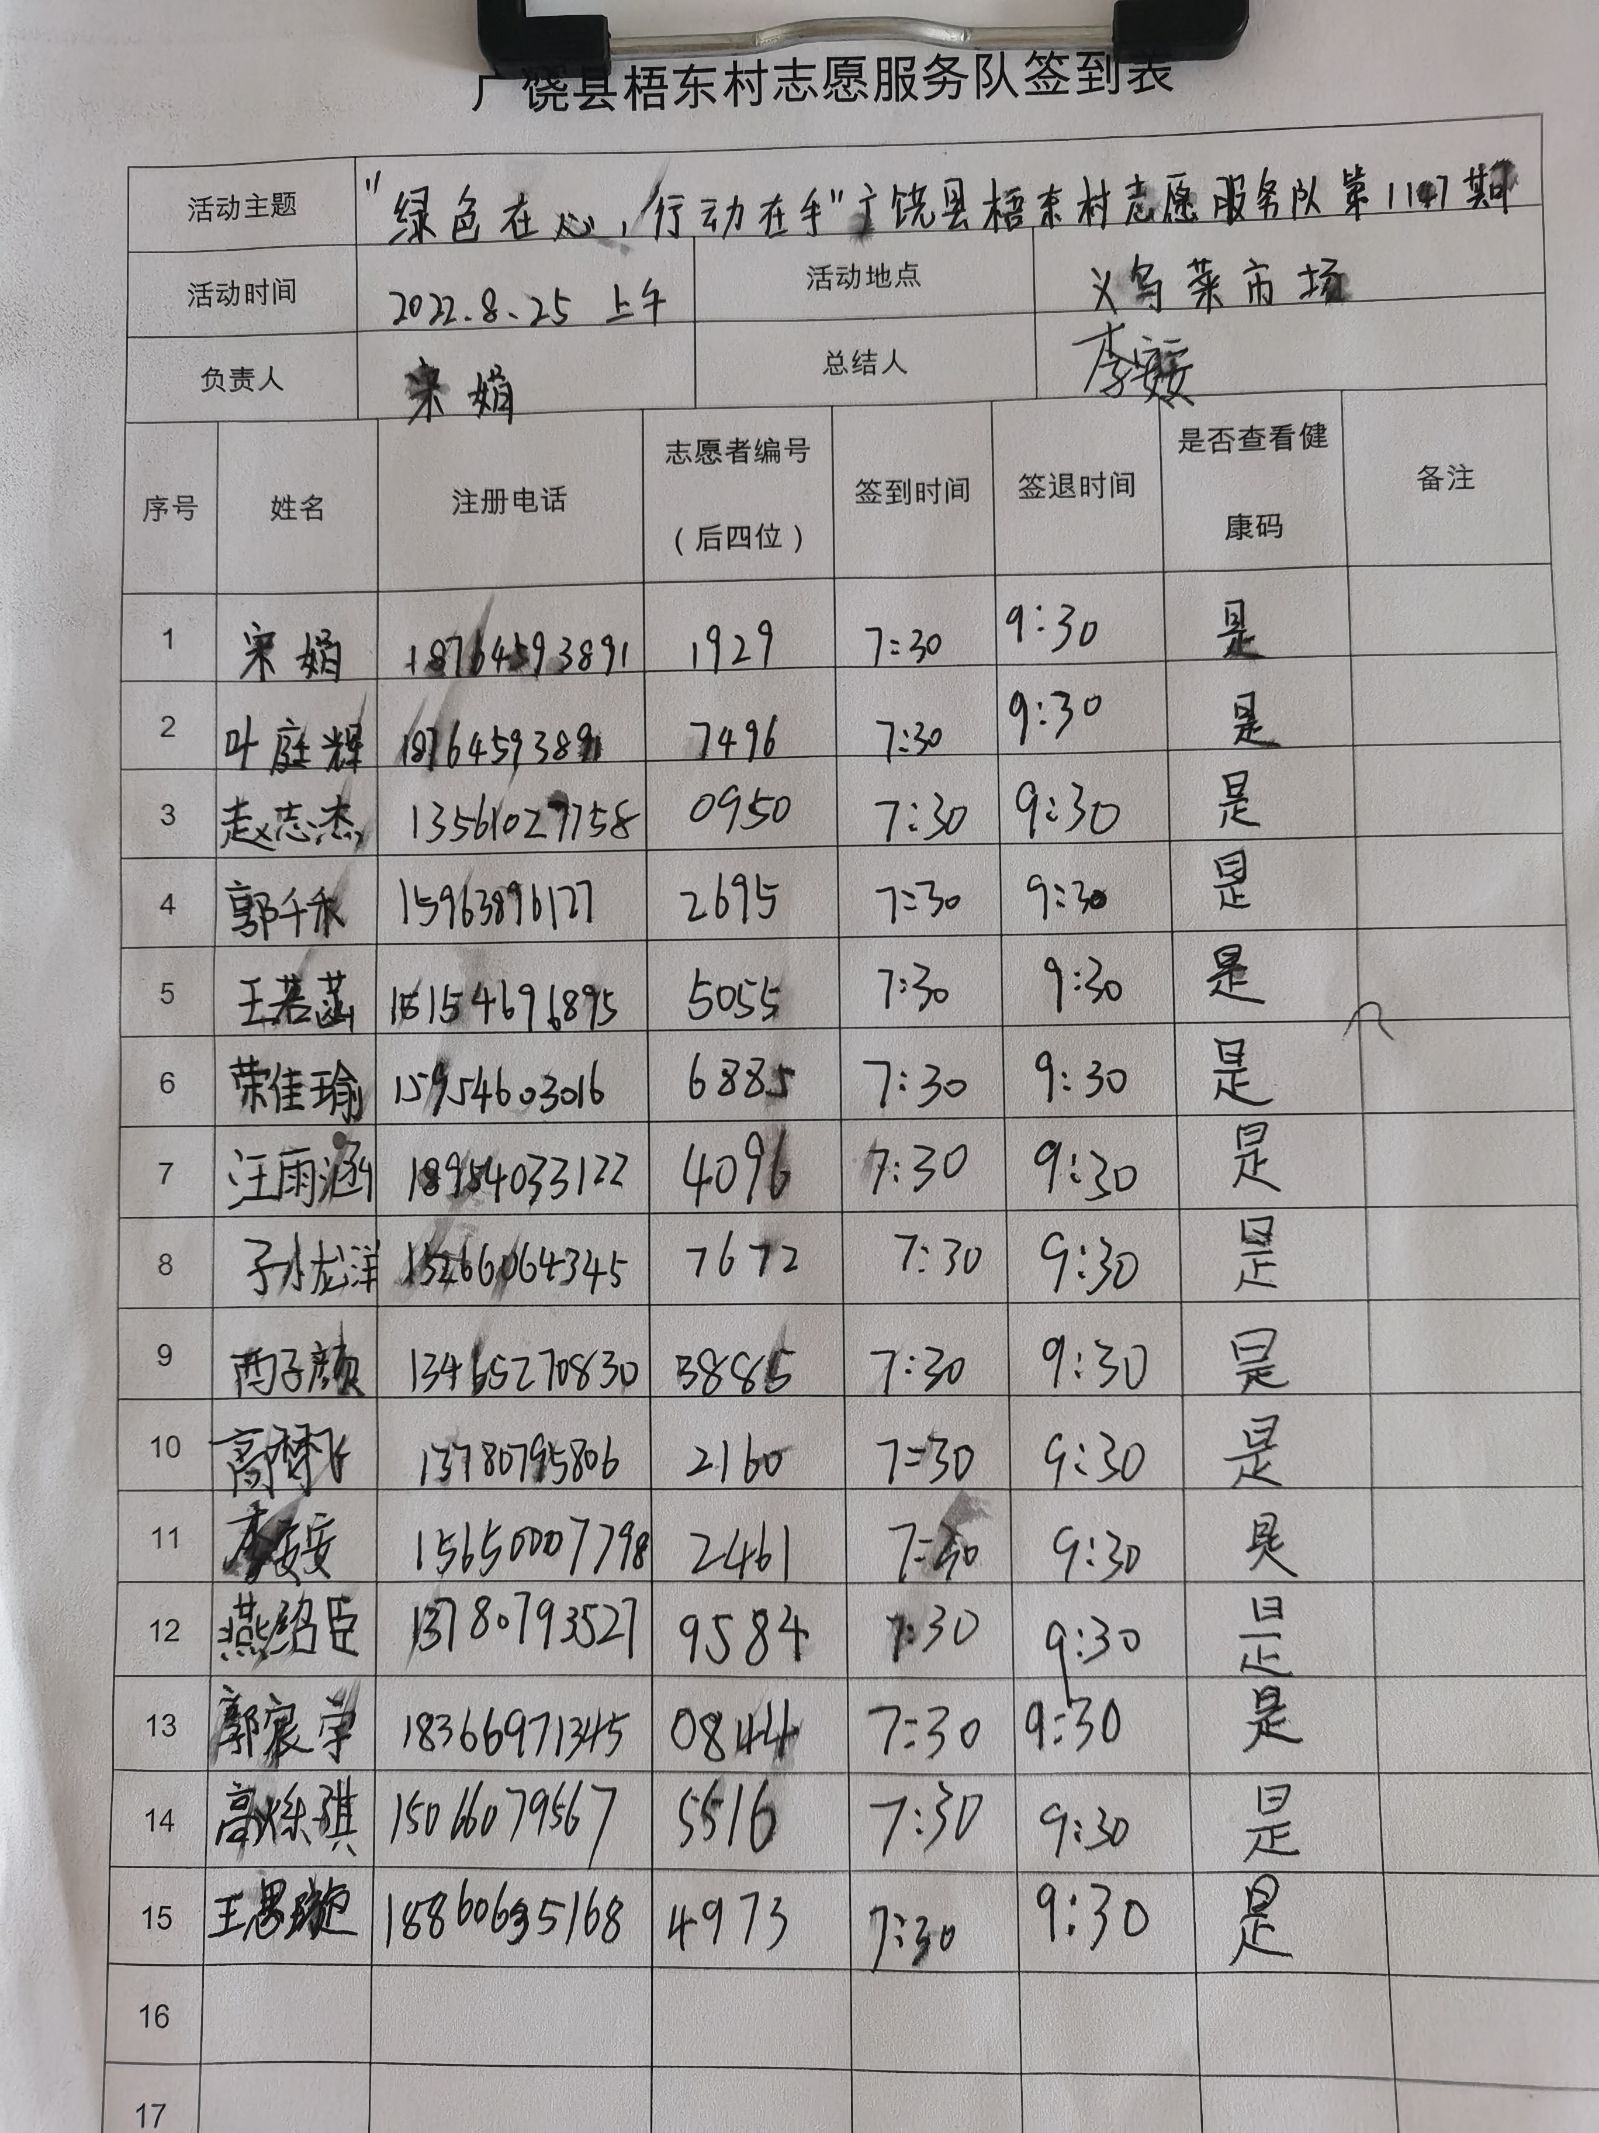 广饶县梧东村志愿服务队签到表
活动主题 "绿色在心,行动在手"广饶县梧东村志愿服务队第1147期
活动时间 2022.8.25 上午 活动地点 义乌菜市场
负责人 宋娟 总结人 李安安
序号 姓名 注册电话 志愿者编号（后四位） 签到时间 签退时间 是否查看健康码 备注
1 宋娟 18764593891 1929 7:30 9:30 是
2 叶庭辉 18764593891 7496 7:30 9:30 是
3 赵志杰 13561027758 0950 7:30 9:30 是
4 郭千禾 15963896127 2695 7:30 9:30 是
5 王若菡 15154696895 5055 7:30 9:30 是
6 荣佳瑜 15954603016 6885 7:30 9:30 是
7 汪雨涵 18954033122 4096 7:30 9:30 是
8 15266064345 7672 7:30 9:30 是
9 西子颜 13465270830 3885 7:30 9:30 是
10 高梦飞 13780795806 2160 7:30 9:30 是
11 李安安 15650007798 2461 7:30 9:30 是
12 燕绍臣 13780793527 9584 7:30 9:30 是
13 郭宸学 18366971345 0844 7:30 9:30 是
14 高烁琪 15066079567 5516 7:30 9:30 是
15 王思璇 18860635168 4973 7:30 9:30 是
16
17